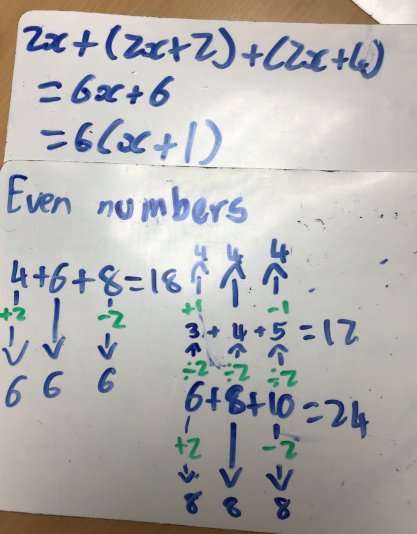 2x+(2x+2)+(2x+4)
=6x+6
=6(x+1)
Even numbers
4+6+8=18
+2 -2
6 6 6
4 4 4
+1 -1
3+4+5=12
÷2 ÷2 ÷2
6+8+10=24
+2 -2
8 8 8